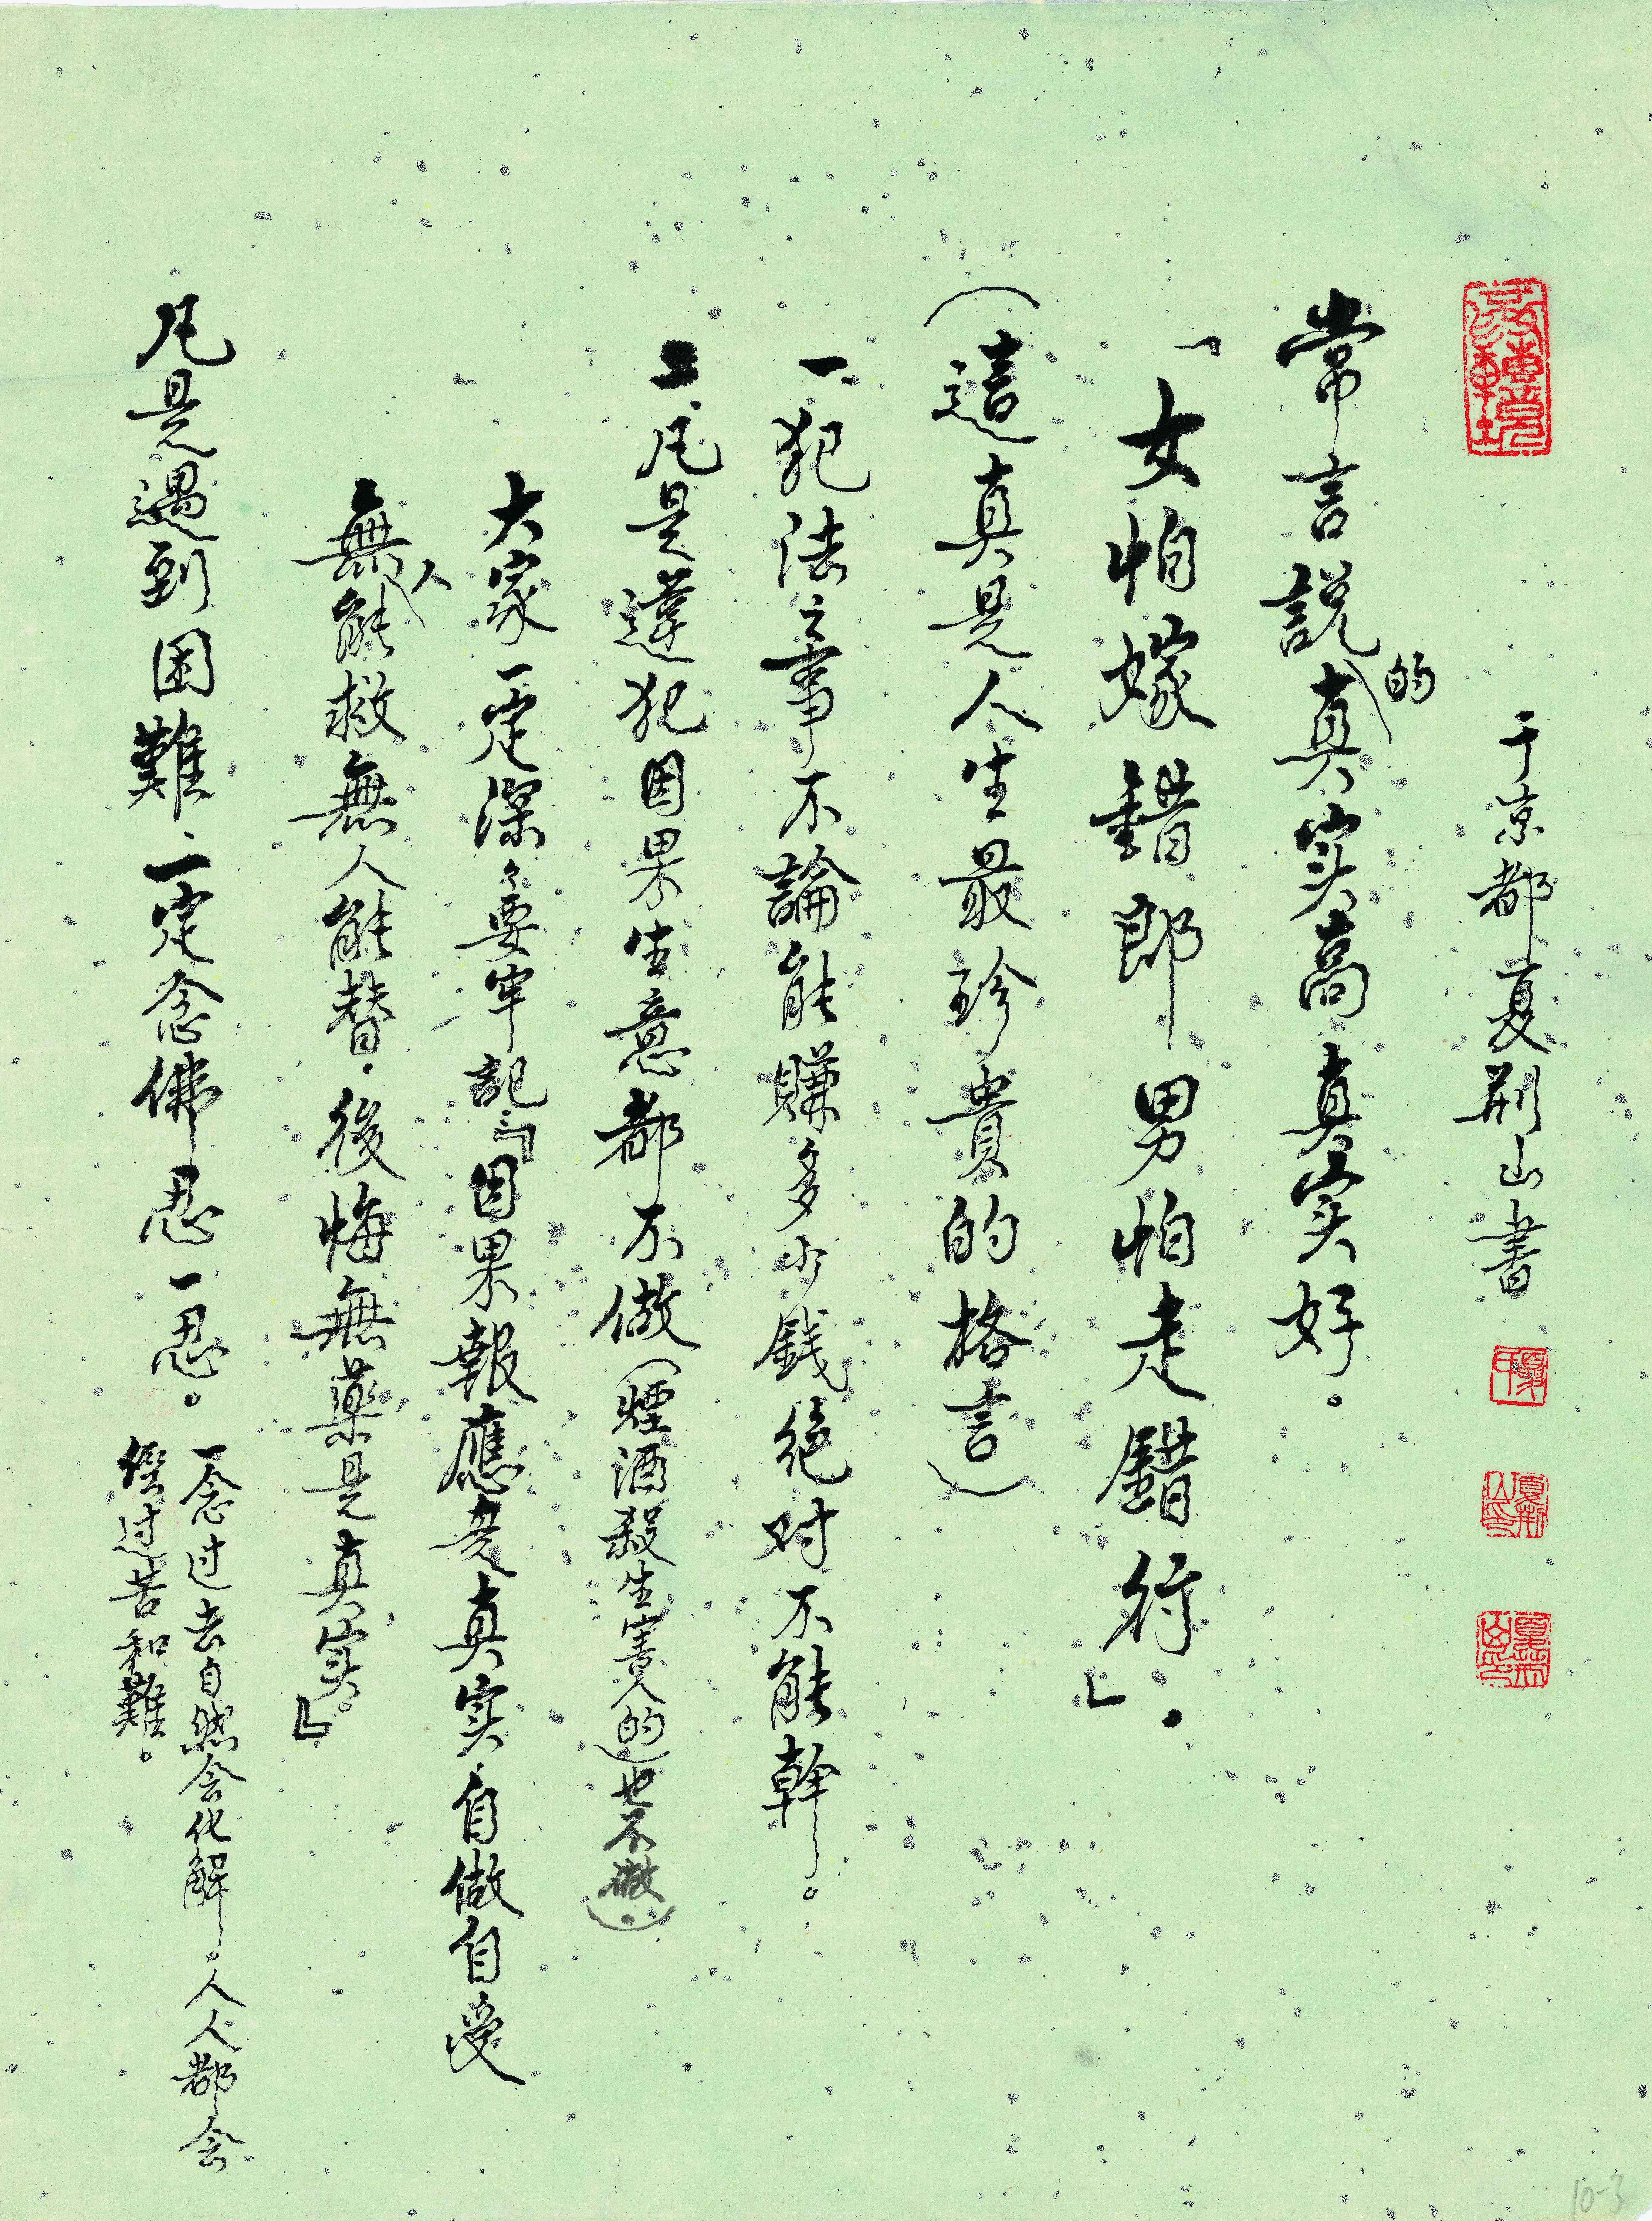 于京都夏荆山書
常言説的真实高真实好。
「女怕嫁錯郎男怕走錯行」.
(這真是人生最珍貴的格言)
一.犯法之事不論能賺多少錢绝对不能幹。
二.凡是違犯因果生意都不做(煙酒殺生害人的也不做)
大家一定深々要牢記『因果報應是真实.自做自受
無人能救無人能替.後悔無藥是真实。』
凡是遇到困難.一定念佛忍一忍。
一念过去自然会化解.人人都会
經过苦和難。
10-3